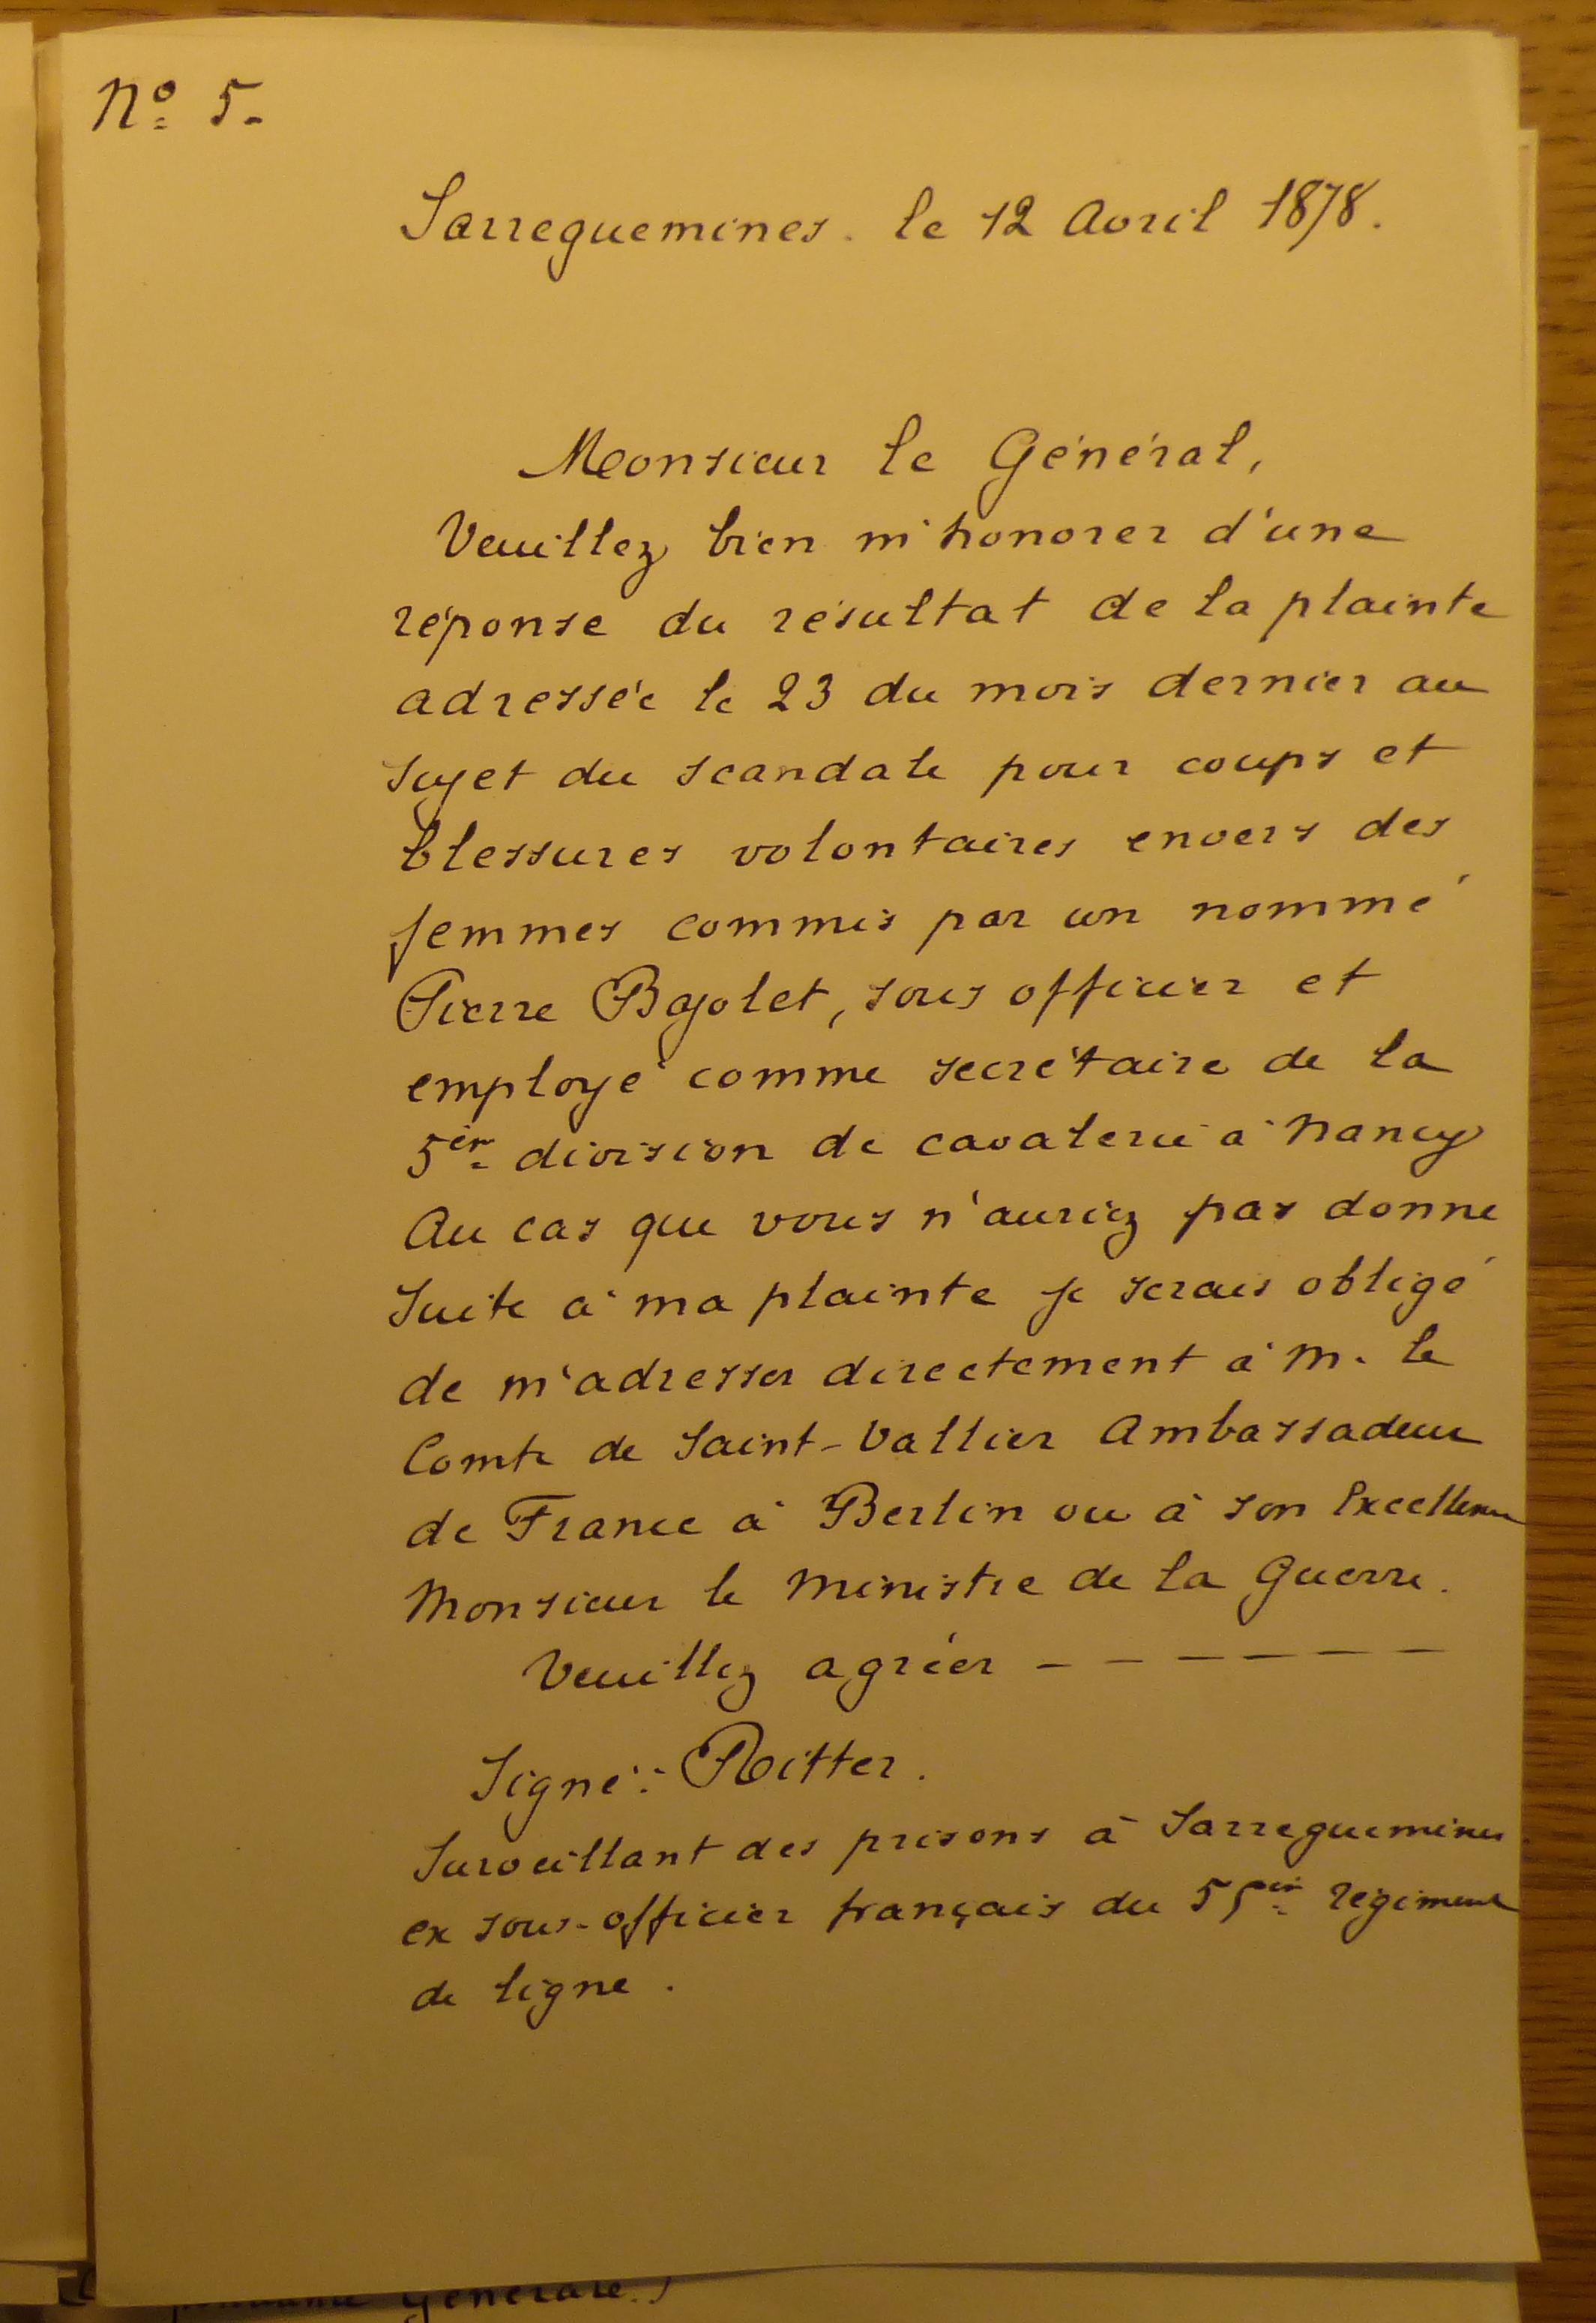 N° 5.
Sarreguemines. le 12 Avril 1878.
Monsieur le Général,
Veuillez bien m'honorer d'une
réponse du résultat de la plainte
adressée le 23 du mois dernier au
sujet du scandale pour coups et
blessures volontaires envers des
femmes commis par un nommé
Pierre Bajolet, sous officier et
employé comme secrétaire de la
5èm division de cavalerie à Nancy
Au cas que vous n'auriez pas donné
suite à ma plainte je serais obligé
de m'adresser directement à M. le
Comte de Saint-Vallier Ambassadeur
de France à Berlin ou à son Excellence
Monsieur le Ministre de la Guerre.
Veuillez agréer - - - - - -
Signé: Ritter.
Surveillant des prisons à Sarreguemines
ex sous-officier français du 55èm régiment
de ligne.
générale.)